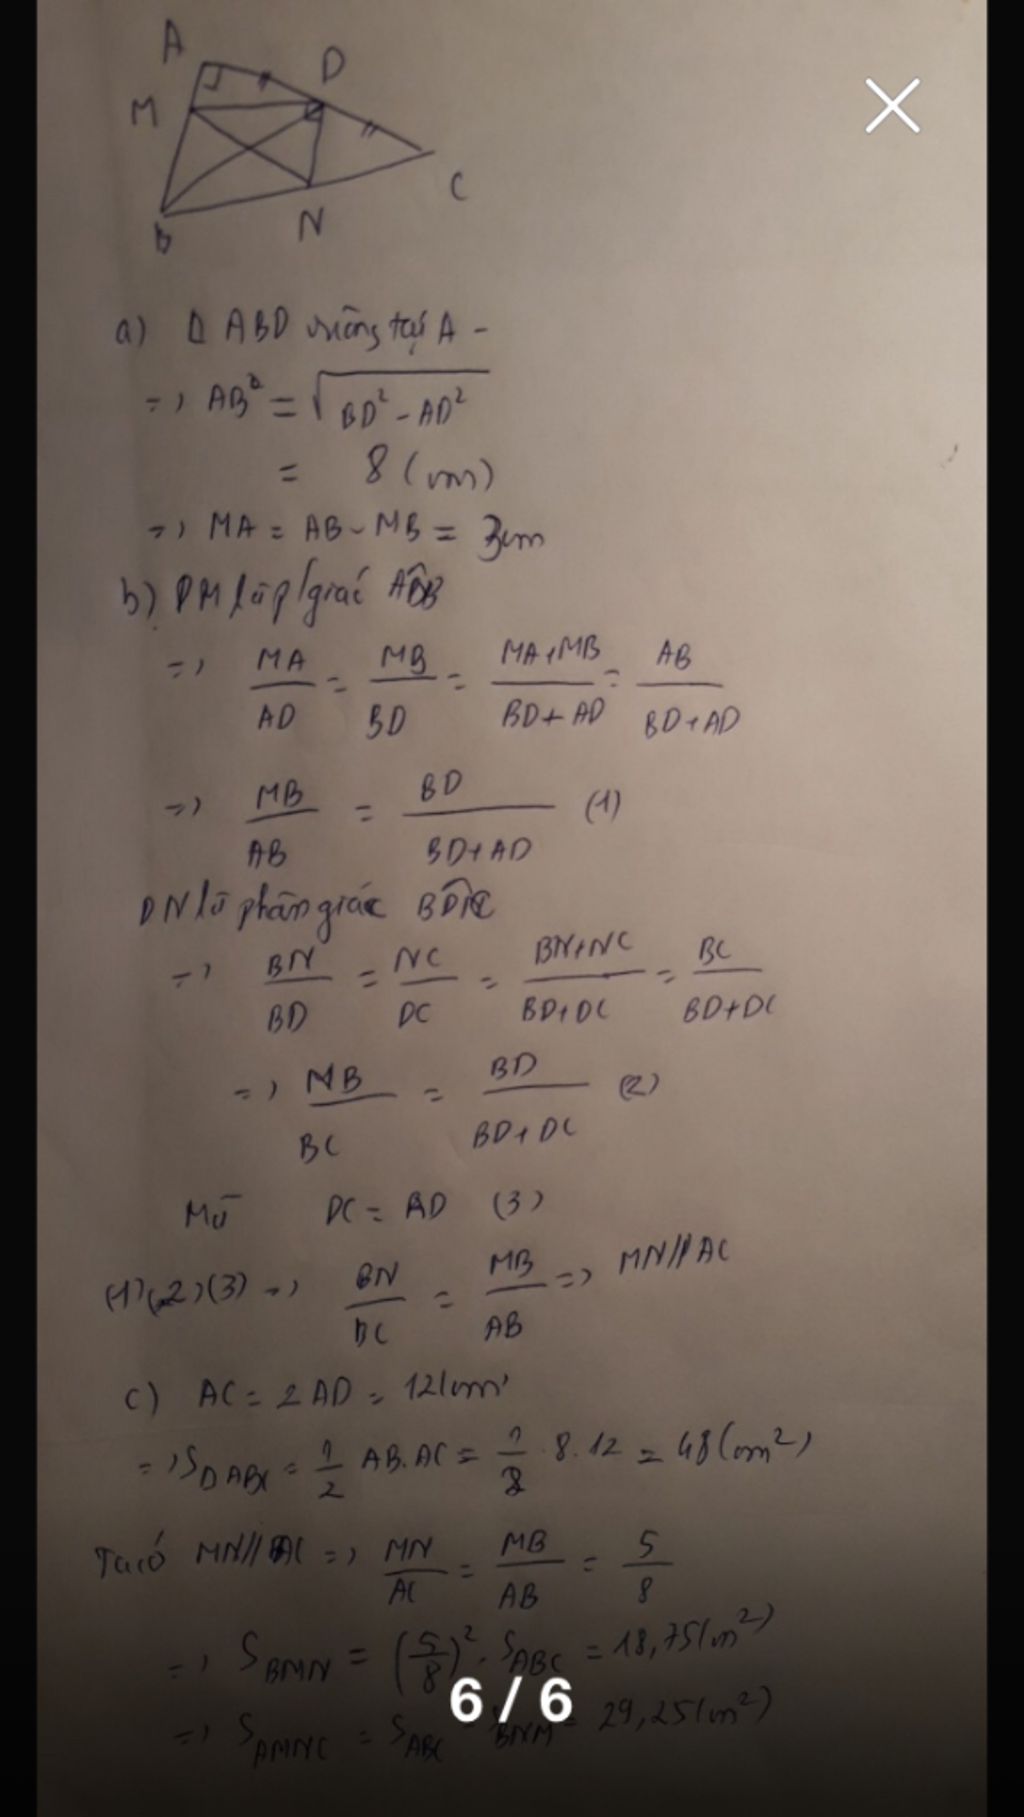 A
D
M
C
B
N
a) Δ ABD vuông tại A -
=> AB² = √BD² - AD²
= 8 (cm)
=> MA = AB - MB = 3cm
b) DM là p/giác ADB
=> MA/AD = MB/BD = MA+MB/BD+AD = AB/BD+AD
=> MB/AB = BD/BD+AD (1)
DN là phân giác BDC
=> BN/BD = NC/DC = BN+NC/BD+DC = BC/BD+DC
=> NB/BC = BD/BD+DC (2)
Mà DC = AD (3)
(1)(2)(3) => BN/BC = MB/AB => MN//AC
c) AC = 2AD = 12(cm)
=> SΔABC = 1/2 AB.AC = 1/2 . 8.12 = 48(cm²)
Ta có MN//AC => MN/AC = MB/AB = 5/8
=> SBMN = (5/8)² . SABC = 18,75(cm²)
6 / 6
=> SAMNC = SABC - SBNM = 29,25(cm²)